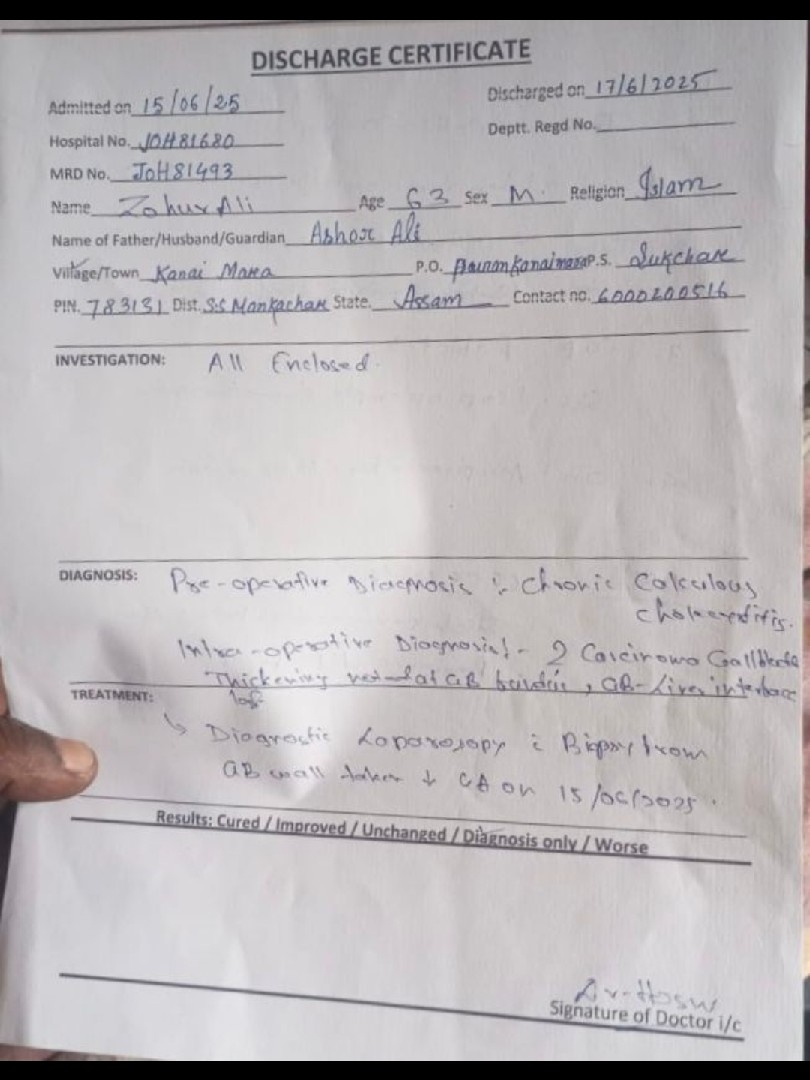 DISCHARGE CERTIFICATE
Admitted on 15/06/25 Discharged on 17/6/2025
Hospital No. JOH81680 Deptt. Regd No.
MRD No. JOH81493
Name Zohur Ali Age 63 Sex M. Religion Islam
Name of Father/Husband/Guardian Ali
Village/Town Kanai Mara P.O. P.S. Sukchar
PIN. 783131 Dist. S.S Mankachar State. Assam Contact no. 6000200516
INVESTIGATION: All Enclosed.
DIAGNOSIS: Pre-operative Diagnosis :- Chronic Calculous
Cholecystitis.
Intra-operative Diagnosis:- ? Carcinoma Gallbladder
Thickening at GB , GB-Liver interface
TREATMENT:
↳ Diagnostic Laparoscopy Biopsy from
GB wall taken ↓ GA on 15/06/2025.
Results: Cured / Improved / Unchanged / Diagnosis only / Worse
Signature of Doctor i/c